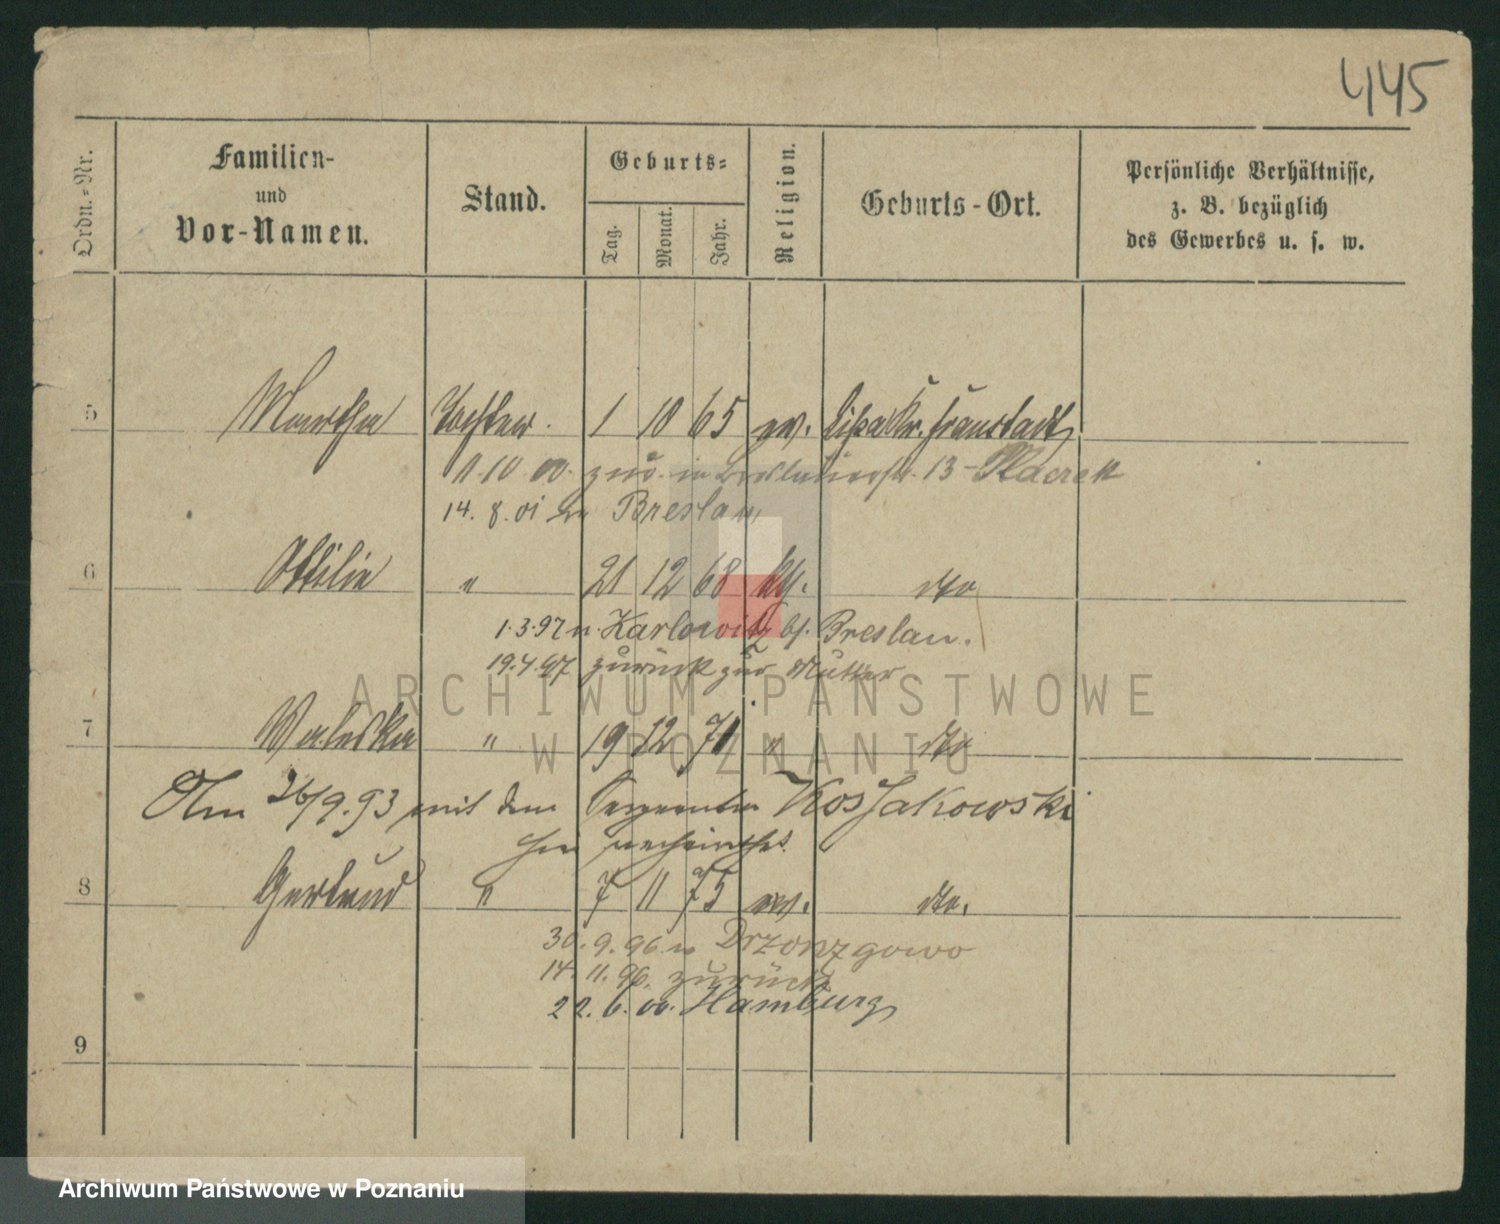 445
Ordn.-Nr.
Familien-
und
Vor-Namen.
Stand.
Geburts-
Tag.
Monat.
Jahr.
Religion.
Geburts-Ort.
Persönliche Verhältnisse,
z. B. bezüglich
des Gewerbes u. s. w.
5 Martha Tochter. 1 10 65 ev. Lissa Kr. Fraustadt
1.10.00. zur. in 13
14. 8. 01 Breslau
6 Ottilie " 21 12 68 dto
1.3.97 n. Karlowitz b/. Breslau.
19.4.97 zurück zur Mutter
7 Waleska " 19 12 71 " dto
Am 26/9.93 mit dem Sergeanten Kosjakowski
hier verheirathet.
8 Gertrud " 7 11 75 ev. dto.
30.9.96 n Drzonzgowo
14. 11. 96. zurück
22. 6. 00. Hamburg
9
ARCHIWUM PAŃSTWOWE
W POZNANIU
Archiwum Państwowe w Poznaniu